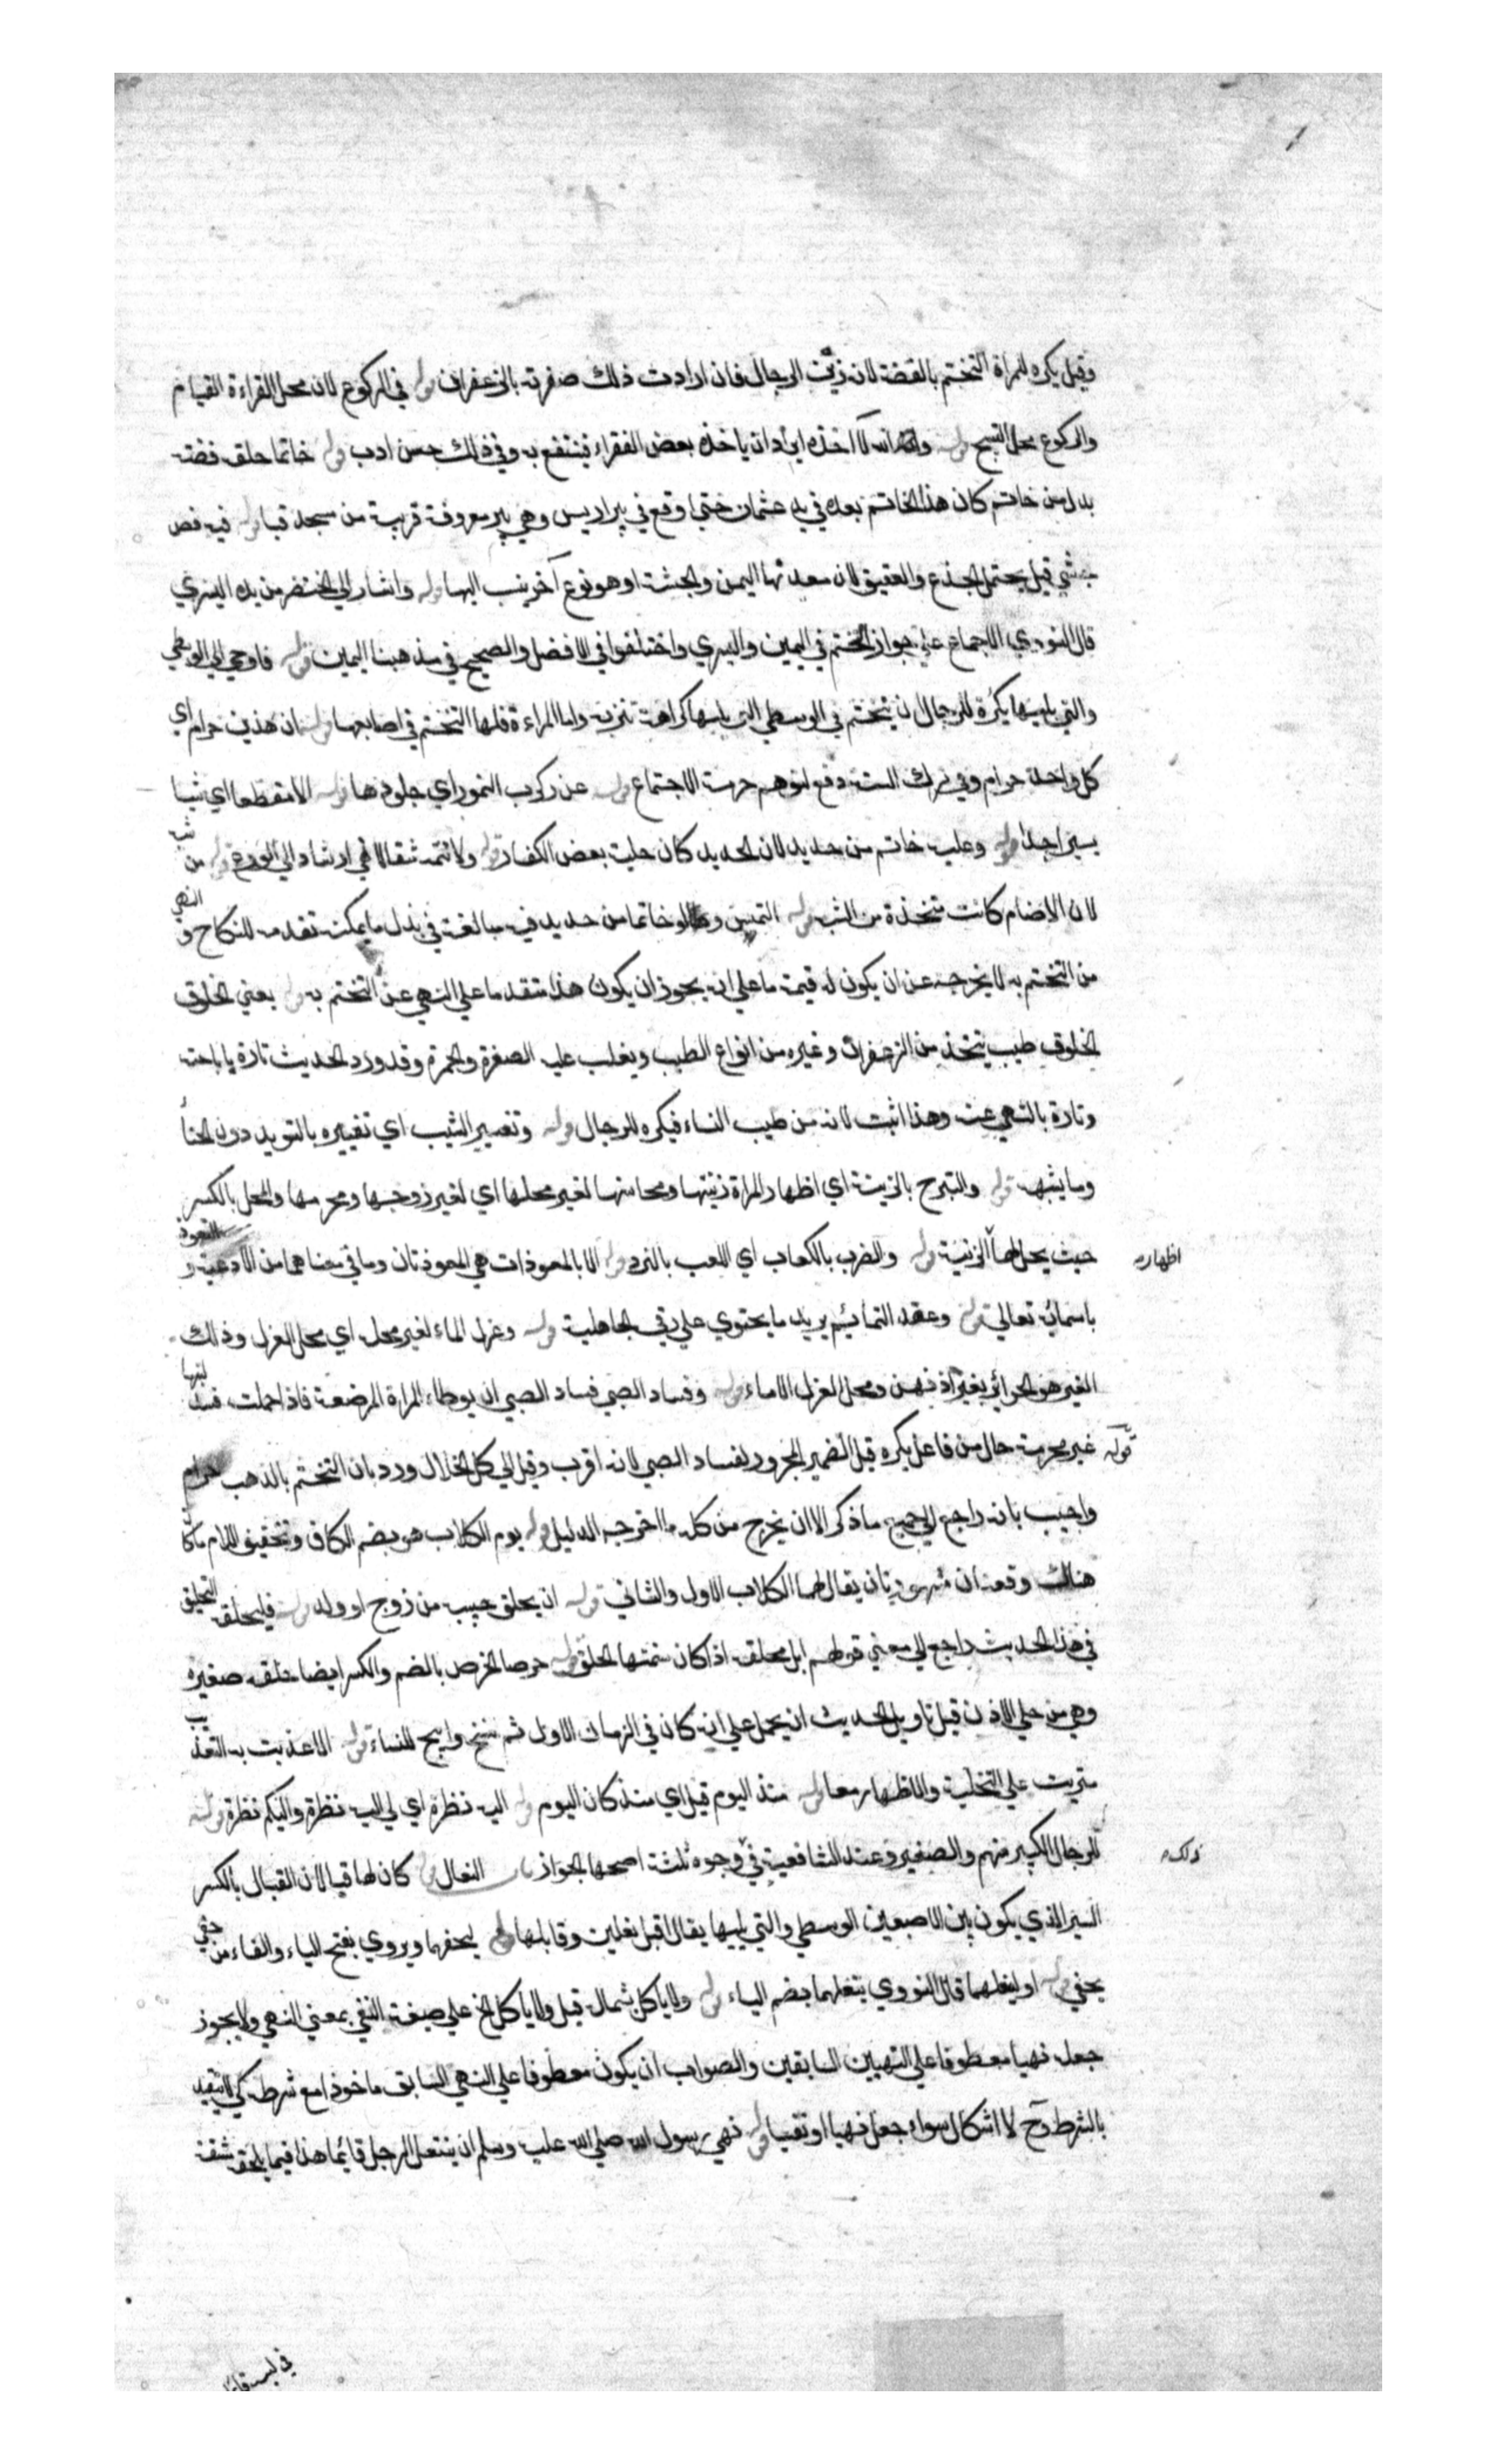 وقيل يكره للمرأة التختم بالفضة لانه زيّ الرجال فان ارادت ذلك صفرته بالزعفران قوله في الركوع لان محل القراءة القيام
والركوع محل التسبيح قوله والله لا اخذه اراد ان ياخذه بعض الفقراء فينتفع به وفي ذلك حسن ادب قوله خاتما حلقه فضة
بدل من خاتم كان هذا الخاتم بعده في يد عثمان حتى وقع في بير اريس وهي بير معروفة قريبة من مسجد قبا قوله فيه فص
حبشي قيل يحتمل الجذع والعقيق لان معدنها اليمن والحبشة او هو نوع آخر ينسب اليها قوله واشار الي الخنصر من يده اليسري
قال النووي الاجماع علي جواز التختم في اليمين واليسري واختلفوا في الافضل والصحيح في مذهبنا اليمين قوله فاومي الي الوسطي
والتي يليها يكره للرجال ان يتختم في الوسطي التي يليها كراهة تنزيه واما المراءة فلها التختم في اصابعها قوله ان هذين حرام اي
كل واحد حرام وفي ترك التثنية دفع لتوهم حرمة الاجتماع قوله عن ركوب النمور اي جلودها قوله الا مقطعا اي شيئا
يسيرا جدا قوله وعليه خاتم من حديد لان الحديد كان حلية بعض الكفار قوله ولا تتمه مثقالا في ارشاد الي الورع قوله من شبه
لان الاصنام كانت تتخذه من الشبه قوله التمس ولو خاتما من حديد فيه مبالغة في بذل ما يمكن تقدمه للنكاح و النهي
من التختم به لا يخرجه عن ان يكون له قيمة ما علي انه يجوز ان يكون هذا متقدما علي النهي عن التختم به قوله يعني الخلوق
الخلوق طيب يتخذ من الزعفران وغيره من انواع الطيب ويغلب عليه الصفرة والحمرة وقد ورد الحديث تارة باباحته
وتارة بالنهي عنه وهذا اثبت لانه من طيب النساء فيكره للرجال قوله وتغيير الشيب اي تغييره بالتسويد دون الحنأ
وما يشبهه قوله والتبرج بالزينة اي اظهار المرأة زينتها ومحاسنها لغير محلها اي لغير زوجها ومحرمها والمحل بالكسر
حيث يحل لها اظهار الزينة قوله والضرب بالكعاب اي اللعب بالنرد قوله الا بالمعوذات هي المعوذتان وما في معناهما من الادعية و التعوذ
باسمائه تعالي قوله وعقد التمائم يريد ما يحتوي علي رقي الجاهلية قوله وعزل الماء لغير محله اي محل العزل وذلك
الغير هو الحرائر بغير اذنهن ومحل العزل الاماء قوله وفساد الصبي فساد الصبي ان يوطاء المرأة المرضعة فاذا حملت فسد لبنها
قوله غير محرمه حال من فاعل يكره قيل الضمير المجرور لفساد الصبي لانه اقرب وقيل الي كل الخلال ورد بان التختم بالذهب حرام
واجيب بانه راجع الي جميع ما ذكر الا ان يخرج من كله ما اخرجه الدليل قوله يوم الكلاب هو بضم الكاف وتخفيف اللام ماء كان
هناك وقعتان مشهورتان يقال لهما الكلاب الاول والثاني قوله ان يحلق حبيبه من زوج او ولد قوله فليحلقه التحليق
في هذا الحديث راجع الي معني قولهم ابل محلقة اذا كان سمتها الحلق قوله خرصا الخرص بالضم والكسر ايضا حلقه صغيره
وهي من حلي الاذن قيل تاويل الحديث ان يحمل علي انه كان في الزمان الاول ثم نسخ وابيح للنساء قوله الا عذبت به التعذيب
مترتب علي التحلية والاظهار معا قوله منذ اليوم قيل اي منذ كان اليوم قوله اليه نظرة اي لي اليه نظرة واليكم نظرة قوله
للرجال الكبير منهم والصغير وعند الشافعية في ذلك وجوه ثلثة اصحها الجواز باب النعال قوله كان لها قبالان القبال بالكسر
السير الذي يكون بين الاصبعين الوسطي والتي يليها يقال اقبل نعلين وقابلها قوله ليحفهما ويروي بفتح الياء والفاء من حفي
يحفي قوله او لينعلهما قال النووي ينعلهما بضم الياء قوله ولا ياكل بشماله قيل ولا ياكل الخ علي صيغة النفي بمعني النهي ولا يجوز
جعله نهيا معطوفا علي النهيين السابقين والصواب ان يكون معطوفا علي النهي السابق ماخوذا مع شرطه كي لا يتقيد
بالشرط وح لا اشكال سواء جعل نهيا او نفيا قوله نهي رسول الله صلي الله عليه وسلم ان ينتعل الرجل قائما هذا فيما يلحقه مشقة
في لبسه قائما